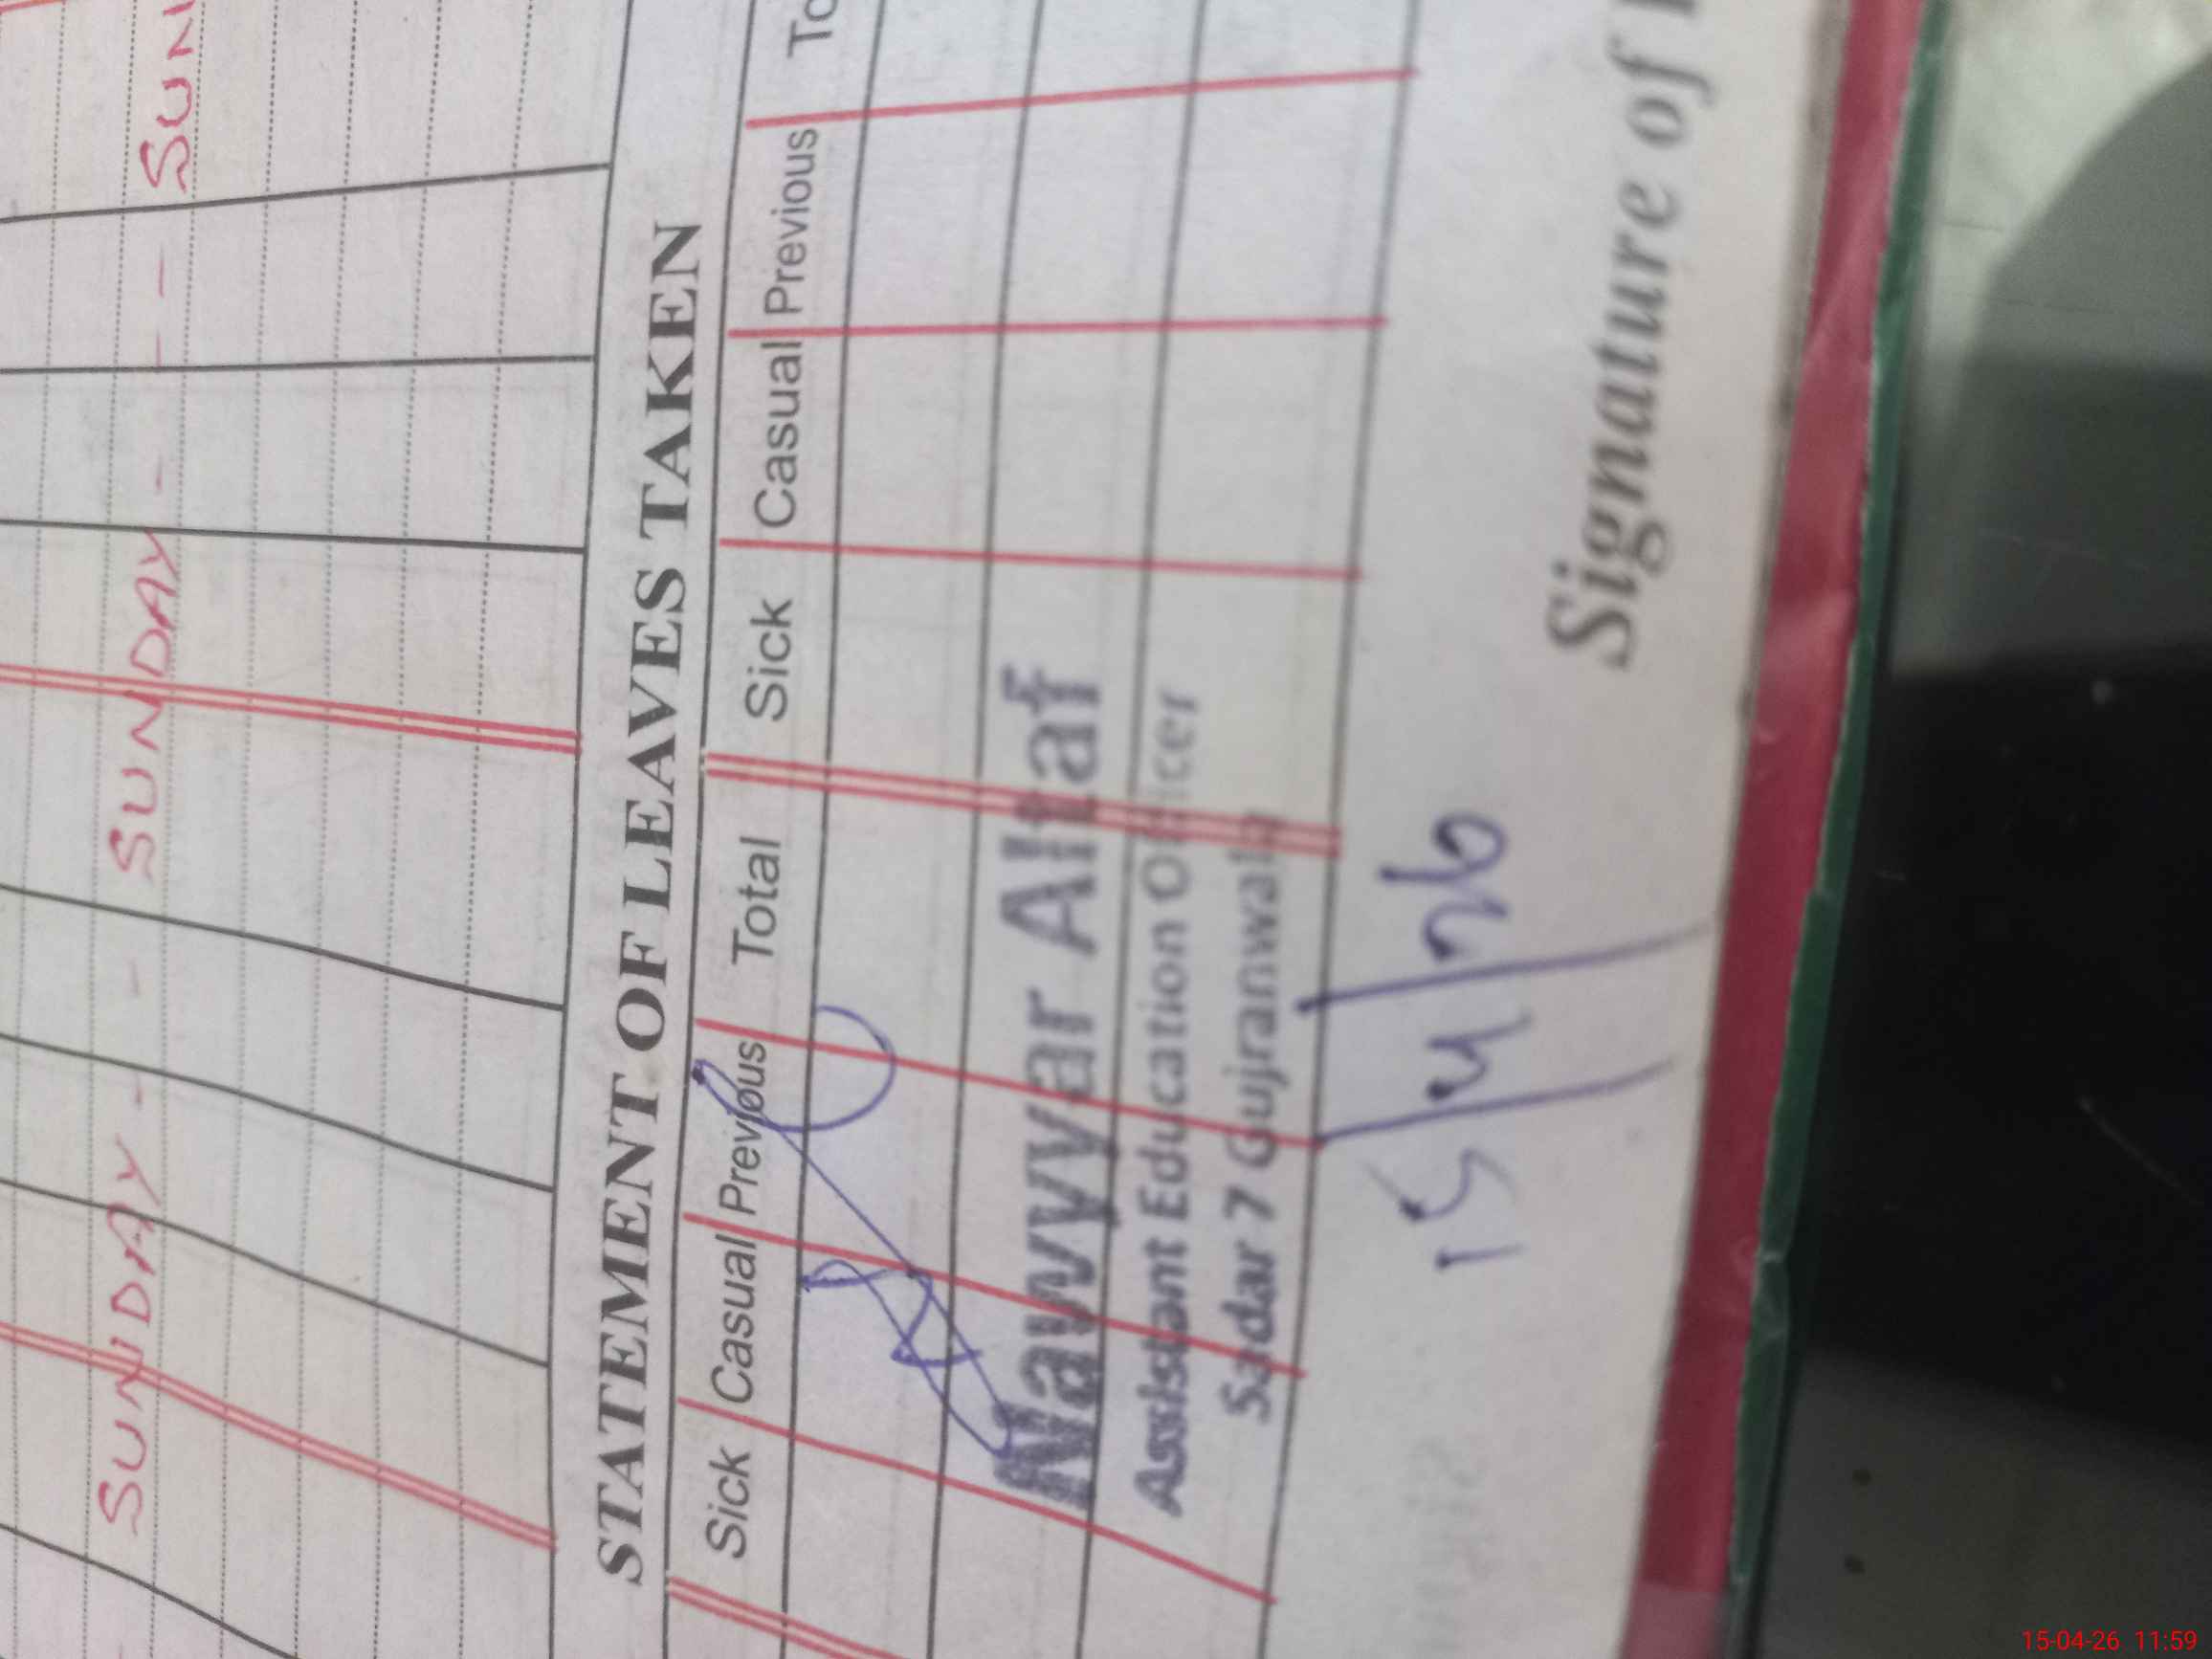 SUNDAY - - SUNDAY - - - - SUN
STATEMENT OF LEAVES TAKEN
Sick Casual Previous Total Sick Casual Previous To
Nawyyar Altaf
Assistant Education Officer
Sadar 7 Gujranwala
15/4/26
Signature of
15-04-26 11:59